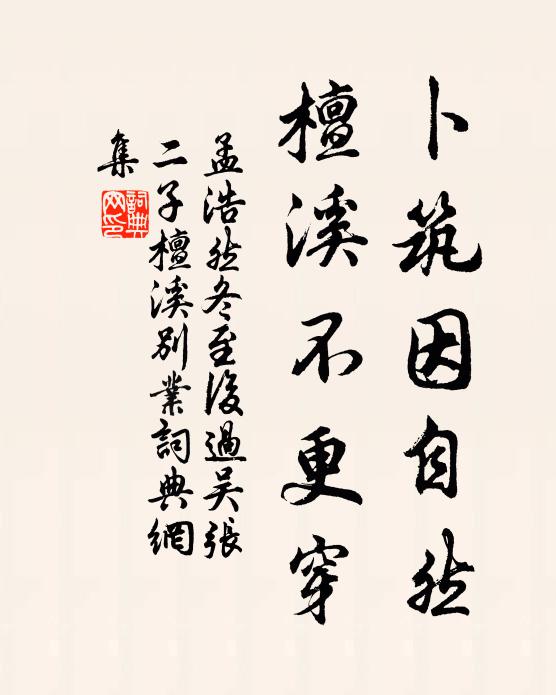 卜筑因自然
檀溪不更穿
孟浩然冬至後過吴張
二子檀溪別業詞典網
集
詞典
网印